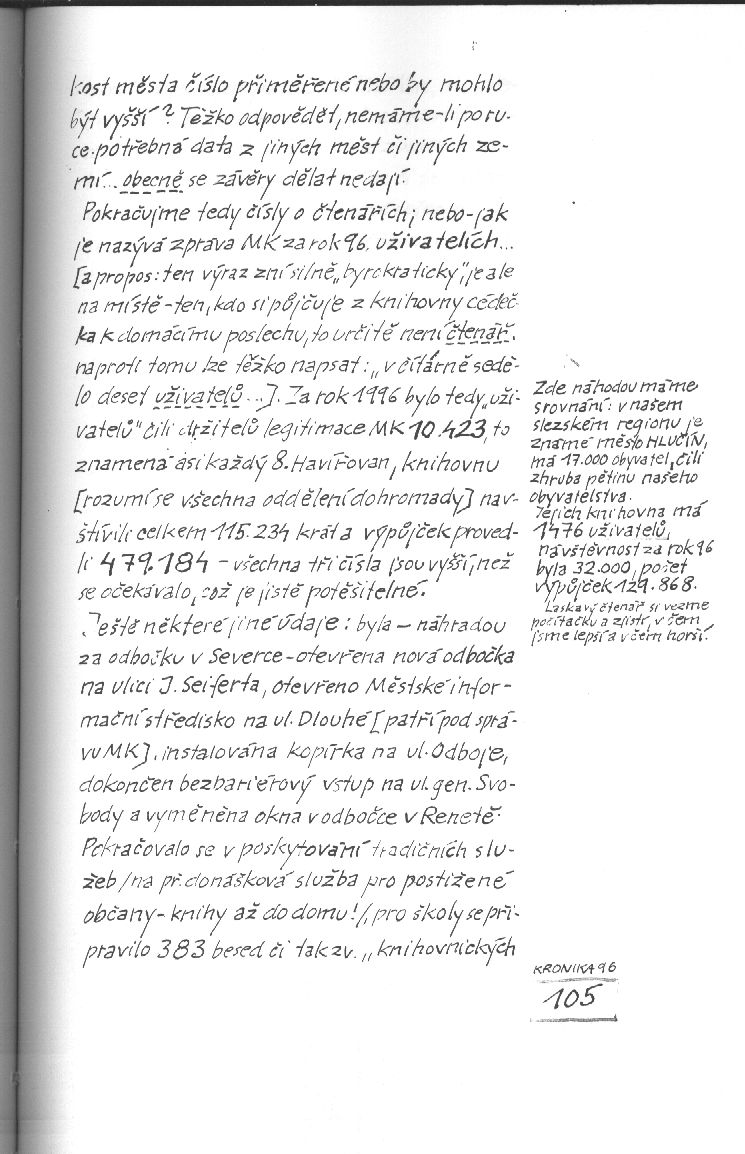 kost města číslo přiměřené nebo by mohlo
být vyšší? Těžko odpovědět, nemáme-li po ru-
ce potřebná data z jiných měst či jiných ze-
mí... obecně se závěry dělat nedají.
Pokračujme tedy čísly o čtenářích; nebo-jak
je nazývá zpráva MK za rok 96, uživatelích...
[a propos: ten výraz zní silně „byrokraticky", je ale
na místě-ten, kdo si půjčuje z knihovny cédéč-
ka k domácímu poslechu, to určitě není čtenář,
naproti tomu lze těžko napsat: „v čítárně sedě-
lo deset uživatelů...]. Za rok 1996 bylo tedy „uži-
vatelů" čili držitelů legitimace MK 10.423, to
znamená asi každý 8. Havířovan, knihovnu
[rozumí se všechna oddělení dohromady] nav-
štívili celkem 115.234 krát a výpůjček proved-
li 479.184 - všechna tři čísla jsou vyšší, než
se očekávalo, což je jistě potěšitelné.
Ještě některé jiné údaje: byla - náhradou
za odbočku v Severce - otevřena nová odbočka
na ulici J. Seiferta, otevřeno Městské infor-
mační středisko na ul. Dlouhé [patří pod sprá-
vu MK], instalována kopírka na ul. Odboje,
dokončen bezbariérový vstup na ul. gen. Svo-
body a vyměněna okna v odbočce v Renetě.
Pokračovalo se v poskytování tradičních slu-
žeb /na př. donášková služba pro postižené
občany - knihy až do domu!/, pro školy se při-
pravilo 383 besed či tak zv. „knihovnických
Zde náhodou máme
srovnání: v našem
slezském regionu je
známé město HLUČÍN,
má 17.000 obyvatel, čili
zhruba pětinu našeho
obyvatelstva.
Jejich knihovna má
1476 uživatelů,
návštěvnost za rok 96
byla 32.000, počet
výpůjček 129.868.
Laskavý čtenář si vezme
počítačku a zjistí, v čem
jsme lepší a v čem horší.
KRONIKA 96
105